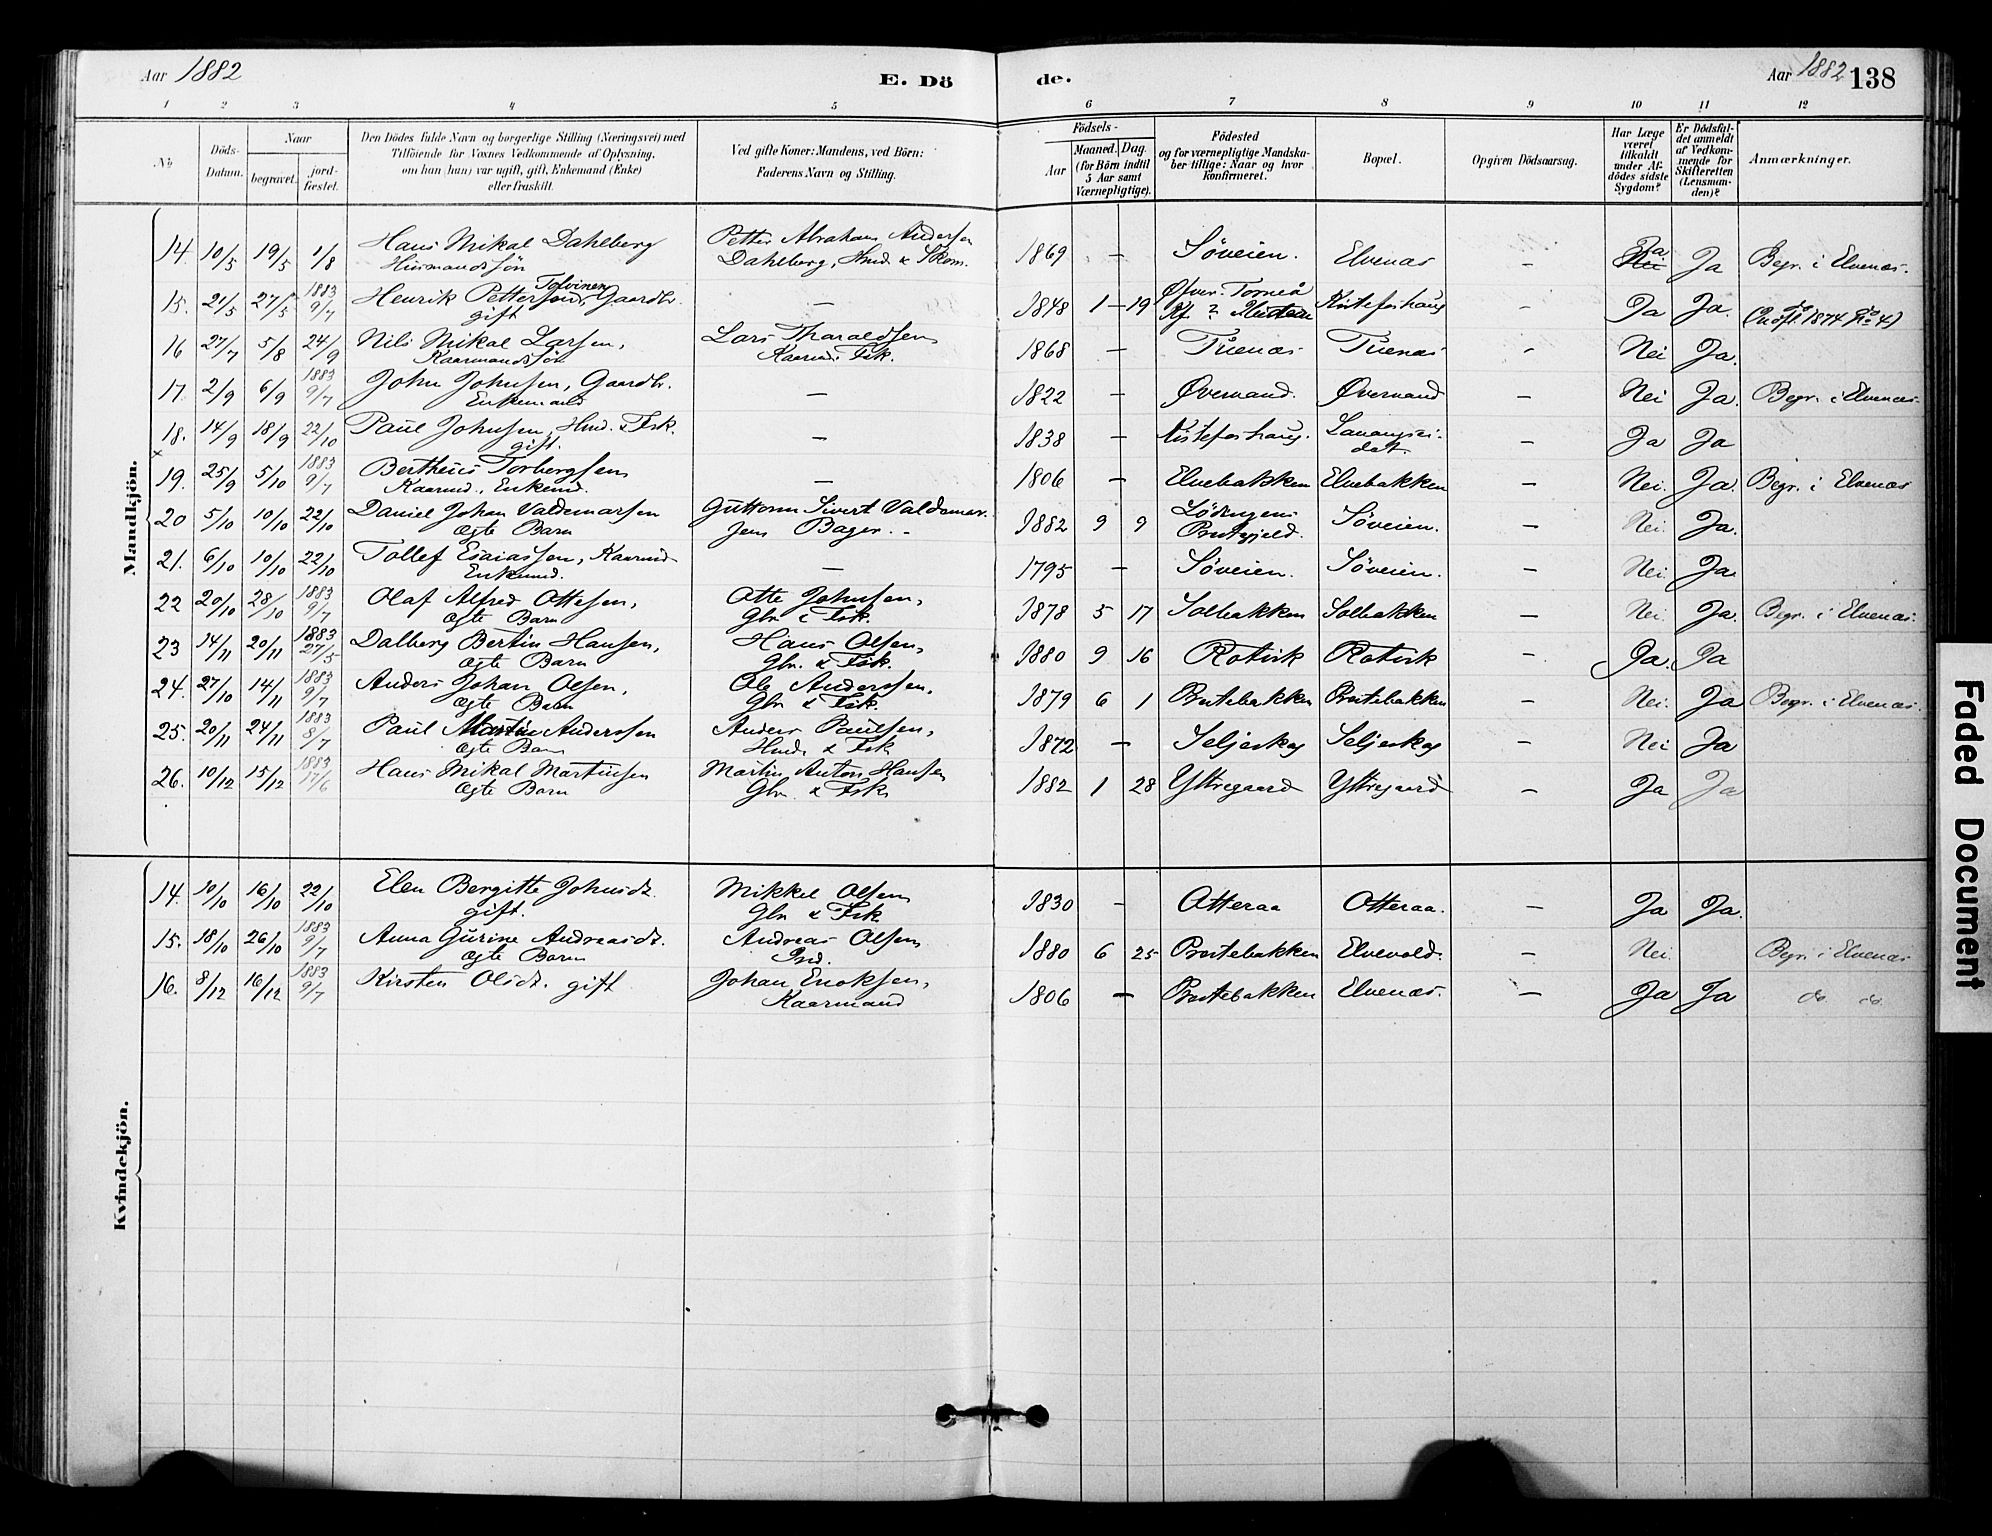 Aar 1882
E. Dö
de.
Aar 1882 138
1 2 3 4 5 6 7 8 9 10 11 12
No
Döds-
Datum.
Naar
begravet.
jord-
fæstet.
Den Dödes fulde Navn og borgerlige Stilling (Næringsvei) med
Tilföiende for Voxnes Vedkommende af Oplysning,
om han (hun) var ugift, gift, Enkemand (Enke)
eller fraskilt.
Ved gifte Koner: Mandens, ved Börn:
Faderens Navn og Stilling.
Födsels-
Aar
Maaned. Dag.
(for Börn indtil
5 Aar samt
Værnepligtige).
Födested
og for værnepligtige Mandska-
ber tillige: Naar og hvor
konfirmeret.
Bopæl.
Opgiven Dödsaarsag.
Har Læge
været
tilkaldt
under Af-
dödes sidste
Sygdom?
Er Dödsfal-
det anmeldt
af Vedkom-
mende for
Skifteretten
(Lensman-
den)?
Anmærkninger.
Mandkjön.
14. 10/5 19/5 1/8 Hans Mikal Dahlberg Petter Abraham Andersen 1869 — Söveien. Elvenæs — Ja Nei Ja Begr. i Elvenæs.
Husmandssön Dahlberg, Hmd. & Skom.
15. 21/5 27/5 1883 9/7 Henrik Petterson Tolvinen, Gaardbr. — 1848 1 — 19 Øfver-Torneå Kistefoshaug Ja Ja. (Indfl. 1874 No 4)
gift
16 27/7 5/8 24/9 Nils Mikal Larsen, Lars Tharaldsen 1868 — Fuenæs Fuenæs - Nei Ja.
Kaarmandssön Kaarmd. Fsk.
17. 2/9 6/9 1883 9/7 John Johnsen, Gaardbr. — 1822 — Øvervand. Øvervand — Nei Ja. Begr. i Elvenæs.
Enkemand
18. 14/9 18/9 22/10 Paul Johnsen, Hmd. & Fsk. — 1838 — Kistefoshaug. Lavangsei-
gift. det. — Ja Ja
x
19. 25/9 5/10 1883 9/7 Bertheus Torbergsen — 1806 — Elvebakken Elvebakken — Nei. Ja. Begr. i Elvenæs
Kaarmd., Enkemd.
20 5/10 10/10 22/10 Daniel Johan Valdemarsen Guttorm Sivert Valdemar- 1882 9 9 Lödingens Söveien. — Nei. Ja.
Ægte Barn sen Bager. - Prestegjeld.
21. 6/10 10/10 22/10 Tollef Esaiassen, Kaarmd. — 1795 — Söveien. Söveien. — Nei. Ja.
Enkemd.
22 20/10 28/10 1883 9/7 Olaf Alfred Ottesen, Otte Johnsen, 1878 5 17 Solbakken Solbakken — Nei. Ja. Begr. i Elvenæs.
Ægte Barn Gbr. & Fsk.
23 14/11 20/11 1883 27/5 Dalberg Bertin Hansen, Hans Olsen, 1880 9 16 Rotvik Rotvik - Ja. Ja
Ægte Barn Gbr. & Fsk.
24. 27/10 14/11 1883 9/7 Anders Johan Olsen, Ole Anderssen, 1879 6 1 Prestebakken Prestebakken — Nei. Ja Begr. i Elvenæs.
Ægte Barn Gbr. & Fsk.
25. 20/11 24/11 1883 8/7 Paul Martin Anderssen Anders Paulsen, 1872 — Seljeskog Seljeskog — Nei Ja
Ægte Barn Hmd. & Fsk
26. 10/12 15/12 1883 17/6 Hans Mikal Martinsen Martin Anton Hansen 1882 1 28 Yttregaard Yttregaard — Ja Ja
Ægte Barn Gbr. & Fsk.
Kvindekjön.
14. 10/10 16/10 22/10 Elen Bergitte Johnsdt. Mikkel Olsen 1830 — Otteraa Otteraa. — Ja Ja.
gift. Gbr & Fsk
15. 18/10 26/10 1883 9/7 Anna Gurine Andreasdt. Andreas Olsen 1880 6 25 Prestebakken Elvevold. — Nei. Begr. i Elvenæs
Ægte Barn Ind.
16. 8/12 16/12 1883 9/7 Kirsten Olsdt. gift Johan Enoksen, 1806 — Prestebakken Elvenæs. — Ja Ja do. do.
Kaarmand
Faded Document